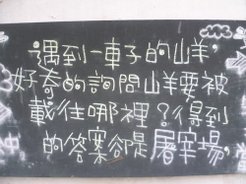 遇到一車子的山羊,
好奇的詢問山羊要被
載往哪裡?得到
的答案卻是屠宰場,